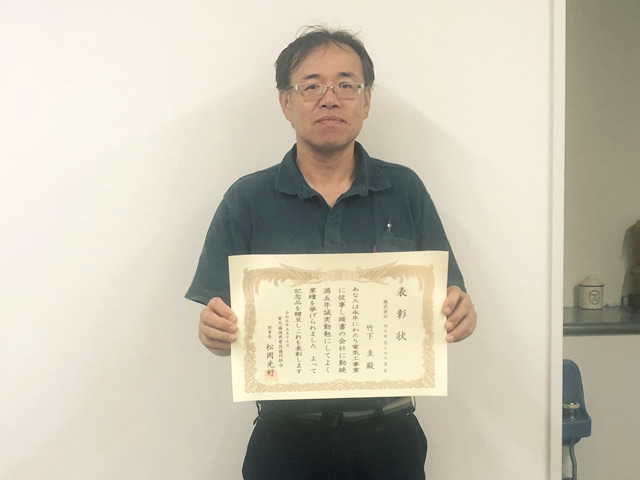 表彰状
株式会社
竹下 圭 殿
あなたは永年にわたり電気工事業
に従事し頭書の会社に勤続
満五年誠実勤勉にしてよく
業績を挙げられました よって
記念品を贈呈しこれを表彰します
理事長 松岡光好